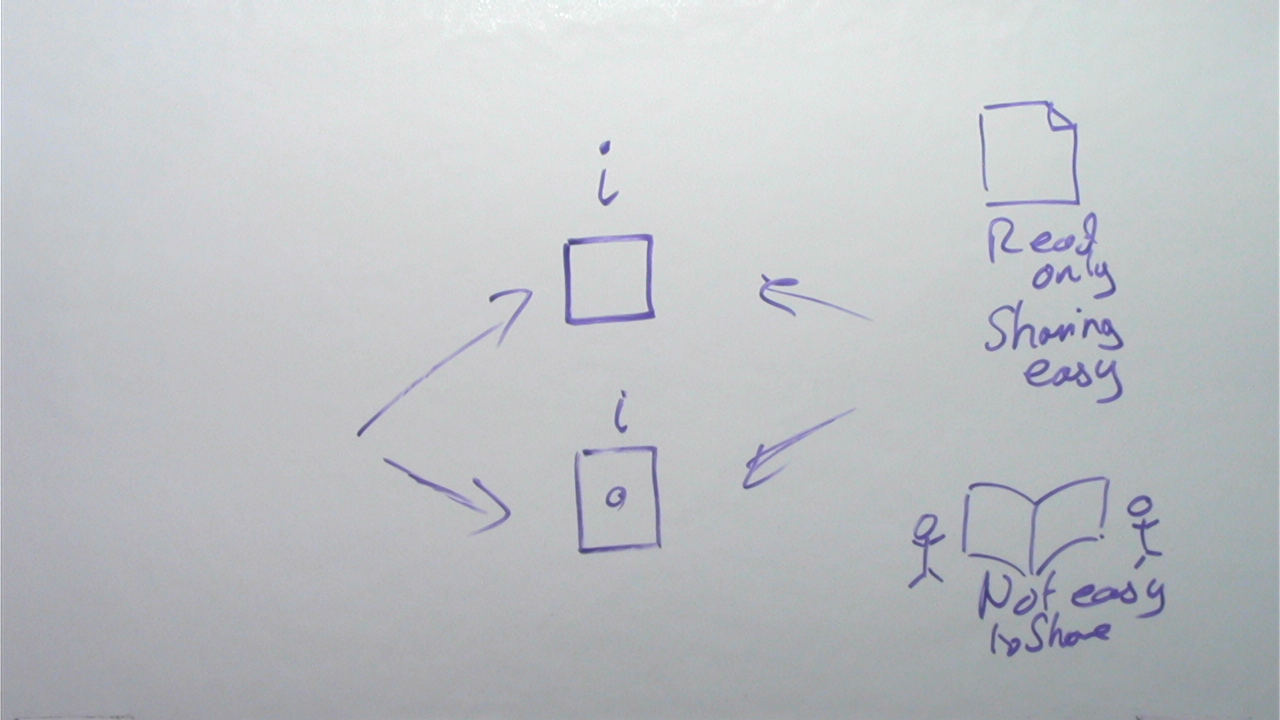 i
Read
only
Sharing
easy
i
0
Not easy
to Share